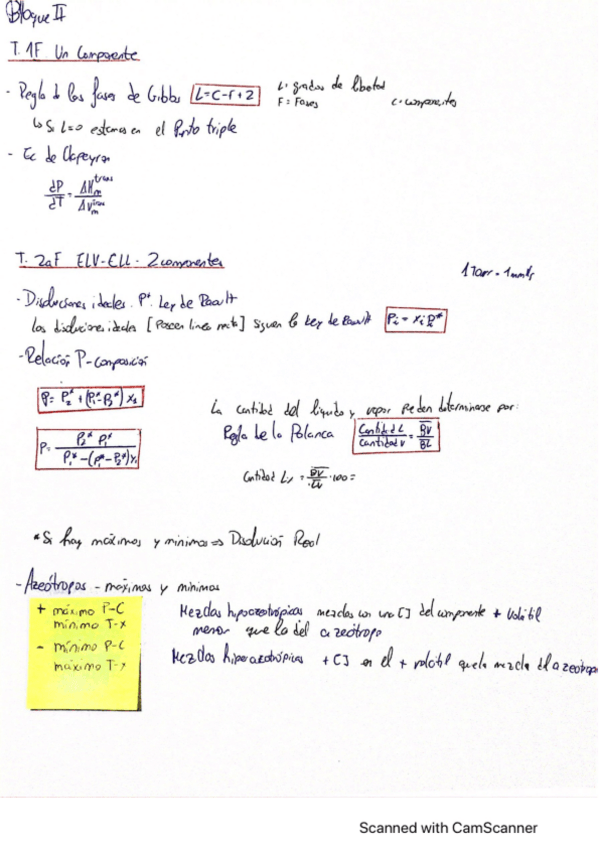 Bloque II
T. 1F Un Componente
- Regla de las fases de Gibbs L=C-F+2 L: grados de libertad
F = Fases c = componentes
↳ Si L=0 estamos en el Punto triple
- Ec de Clapeyron
dP/dT = ΔHm^trans/ΔVm^trans
T. 2aF ELV-ELL - 2 componentes
1 Torr = 1 mmHg
- Disoluciones ideales. P*. Ley de Raoult
Las disoluciones ideales [Poseen linea recta] siguen la Ley de Raoult Pi = xi Pi*
- Relación P-composición
P = P2* + (P1* - P2*) x1
La cantidad del liquido y vapor pueden determinarse por:
Regla de la Palanca Cantidad L/Cantidad V = BV/BL
P = P2* P1*/P1* - (P1* - P2*) y1
Cantidad L = BV/LV · 100 =
* Si hay máximos y minimos => Disolución Real
- Azeótropos - máximos y minimos
+ máximo P-C
mínimo T-x
- mínimo P-C
máximo T-x
Mezclas hipoazeotrópicas mezclas con una [] del componente + volátil
menor que la del azeótropo
Mezclas hiperazeotrópicas + [] en el + volátil que la mezcla del azeotropo
Scanned with CamScanner